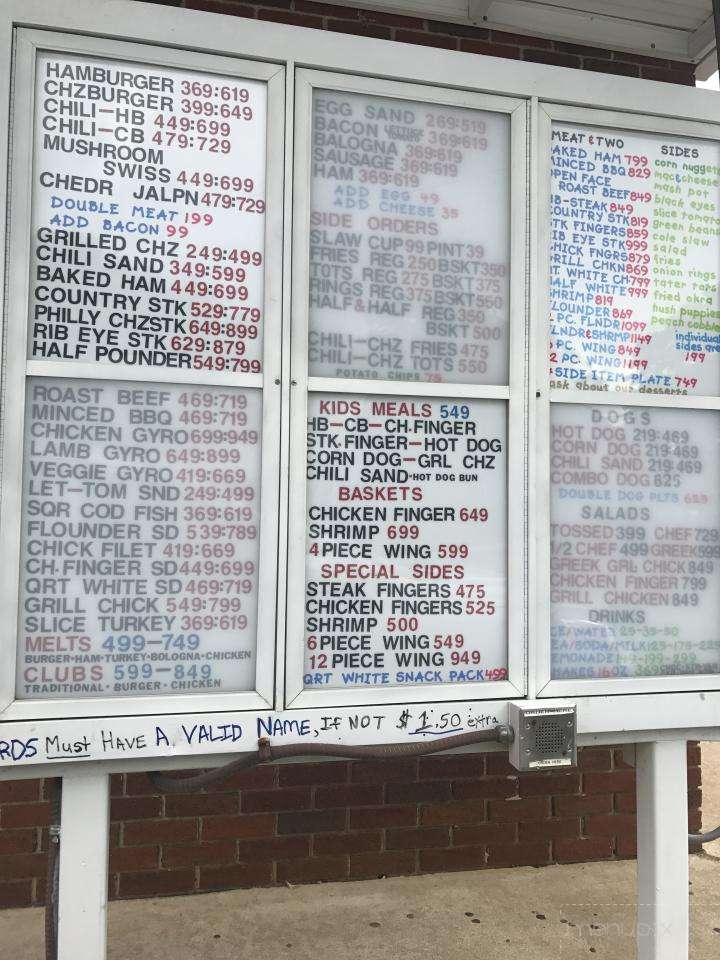 HAMBURGER 369:619
CHZBURGER 399:649
CHILI-HB 449:699
CHILI-CB 479:729
MUSHROOM
SWISS 449:699
CHEDR JALPN 479:729
DOUBLE MEAT 199
ADD BACON 99
GRILLED CHZ 249:499
CHILI SAND 349:599
BAKED HAM 449:699
COUNTRY STK 529:779
PHILLY CHZSTK 649:899
RIB EYE STK 629:879
HALF POUNDER 549:799
ROAST BEEF 469:719
MINCED BBQ 469:719
CHICKEN GYRO 699:949
LAMB GYRO 649:899
VEGGIE GYRO 419:669
LET-TOM SND 249:499
SQR COD FISH 369:619
FLOUNDER SD 539:789
CHICK FILET 419:669
CH.FINGER SD 449:699
QRT WHITE SD 469:719
GRILL CHICK 549:799
SLICE TURKEY 369:619
MELTS 499-749
BURGER·HAM·TURKEY·BOLOGNA·CHICKEN
CLUBS 599-849
TRADITIONAL·BURGER·CHICKEN
EGG SAND 269:519
BACON 369:619
BALOGNA 369:619
SAUSAGE 369:619
HAM 369:619
ADD EGG 49
ADD CHEESE 35
SIDE ORDERS
SLAW CUP 99 PINT 39
FRIES REG 250 BSKT 350
TOTS REG 275 BSKT 375
RINGS REG 375 BSKT 550
HALF & HALF REG 350
BSKT 500
CHILI-CHZ FRIES 475
CHILI-CHZ TOTS 550
POTATO CHIPS 75
KIDS MEALS 549
HB-CB-CH.FINGER
STK.FINGER-HOT DOG
CORN DOG-GRL CHZ
CHILI SAND-HOT DOG BUN
BASKETS
CHICKEN FINGER 649
SHRIMP 699
4 PIECE WING 599
SPECIAL SIDES
STEAK FINGERS 475
CHICKEN FINGERS 525
SHRIMP 500
6 PIECE WING 549
12 PIECE WING 949
QRT WHITE SNACK PACK 499
MEAT & TWO
AKED HAM 799
INCED BBQ 829
PEN FACE
ROAST BEEF 849
B-STEAK 849
OUNTRY STK 819
TK FINGERS 859
IB EYE STK 999
HICK FNGRS 879
RILL CHKN 869
RT WHITE CH 799
ALF WHITE 999
HRIMP 819
LOUNDER 869
PC. FLNDR 1099
LNDR&SHRMP 1149
PC. WING 849
2 PC. WING 1199
SIDE ITEM PLATE 749
ask about our desserts
SIDES
corn nugget
mac&cheese
mash pot
black eyes
slice tomato
green beans
cole slaw
salad
fries
onion rings
tater tots
fried okra
hush puppies
individual
sides are
199
DOGS
HOT DOG 219:469
CORN DOG 219:469
CHILI SAND 219:469
COMBO DOG 625
DOUBLE DOG PLTS 659
SALADS
TOSSED 399 CHEF 729
1/2 CHEF 499 GREEK 599
GREEK GRL CHICK 849
CHICKEN FINGER 799
GRILL CHICKEN 849
DRINKS
CE/WATER 25-35-50
EA/SODA/MILK
EMONADE
HAKES 16OZ
RDS Must HAVE A VALID NAME, IF NOT $1.50 extra
menupix